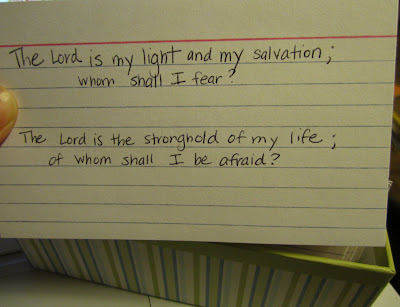 The Lord is my light and my salvation;
whom shall I fear?
The Lord is the stronghold of my life;
of whom shall I be afraid?